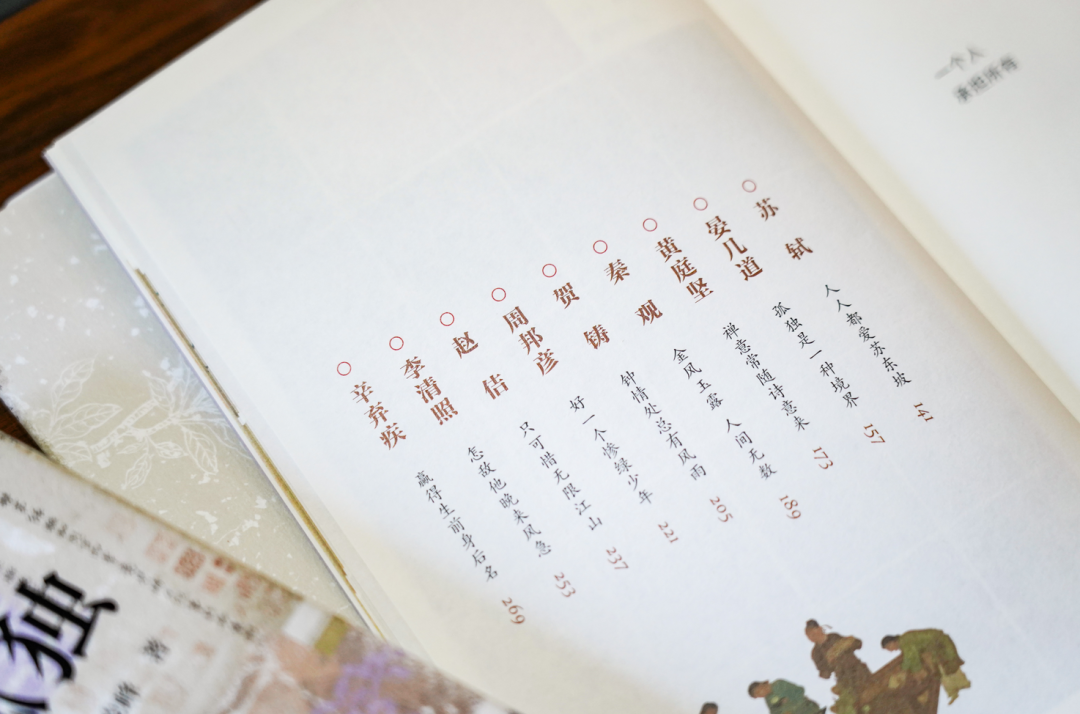 一个人
承担所有
苏轼 人人都爱苏东坡 141
晏几道 孤独是一种境界 157
黄庭坚 禅意常随诗意来 173
秦观 金风玉露 人间无数 189
贺铸 钟情处总有风雨 205
周邦彦 好一个惨绿少年 221
赵佶 只可惜无限江山 237
李清照 怎敌他晚来风急 253
辛弃疾 赢得生前身后名 269
独
峰 著